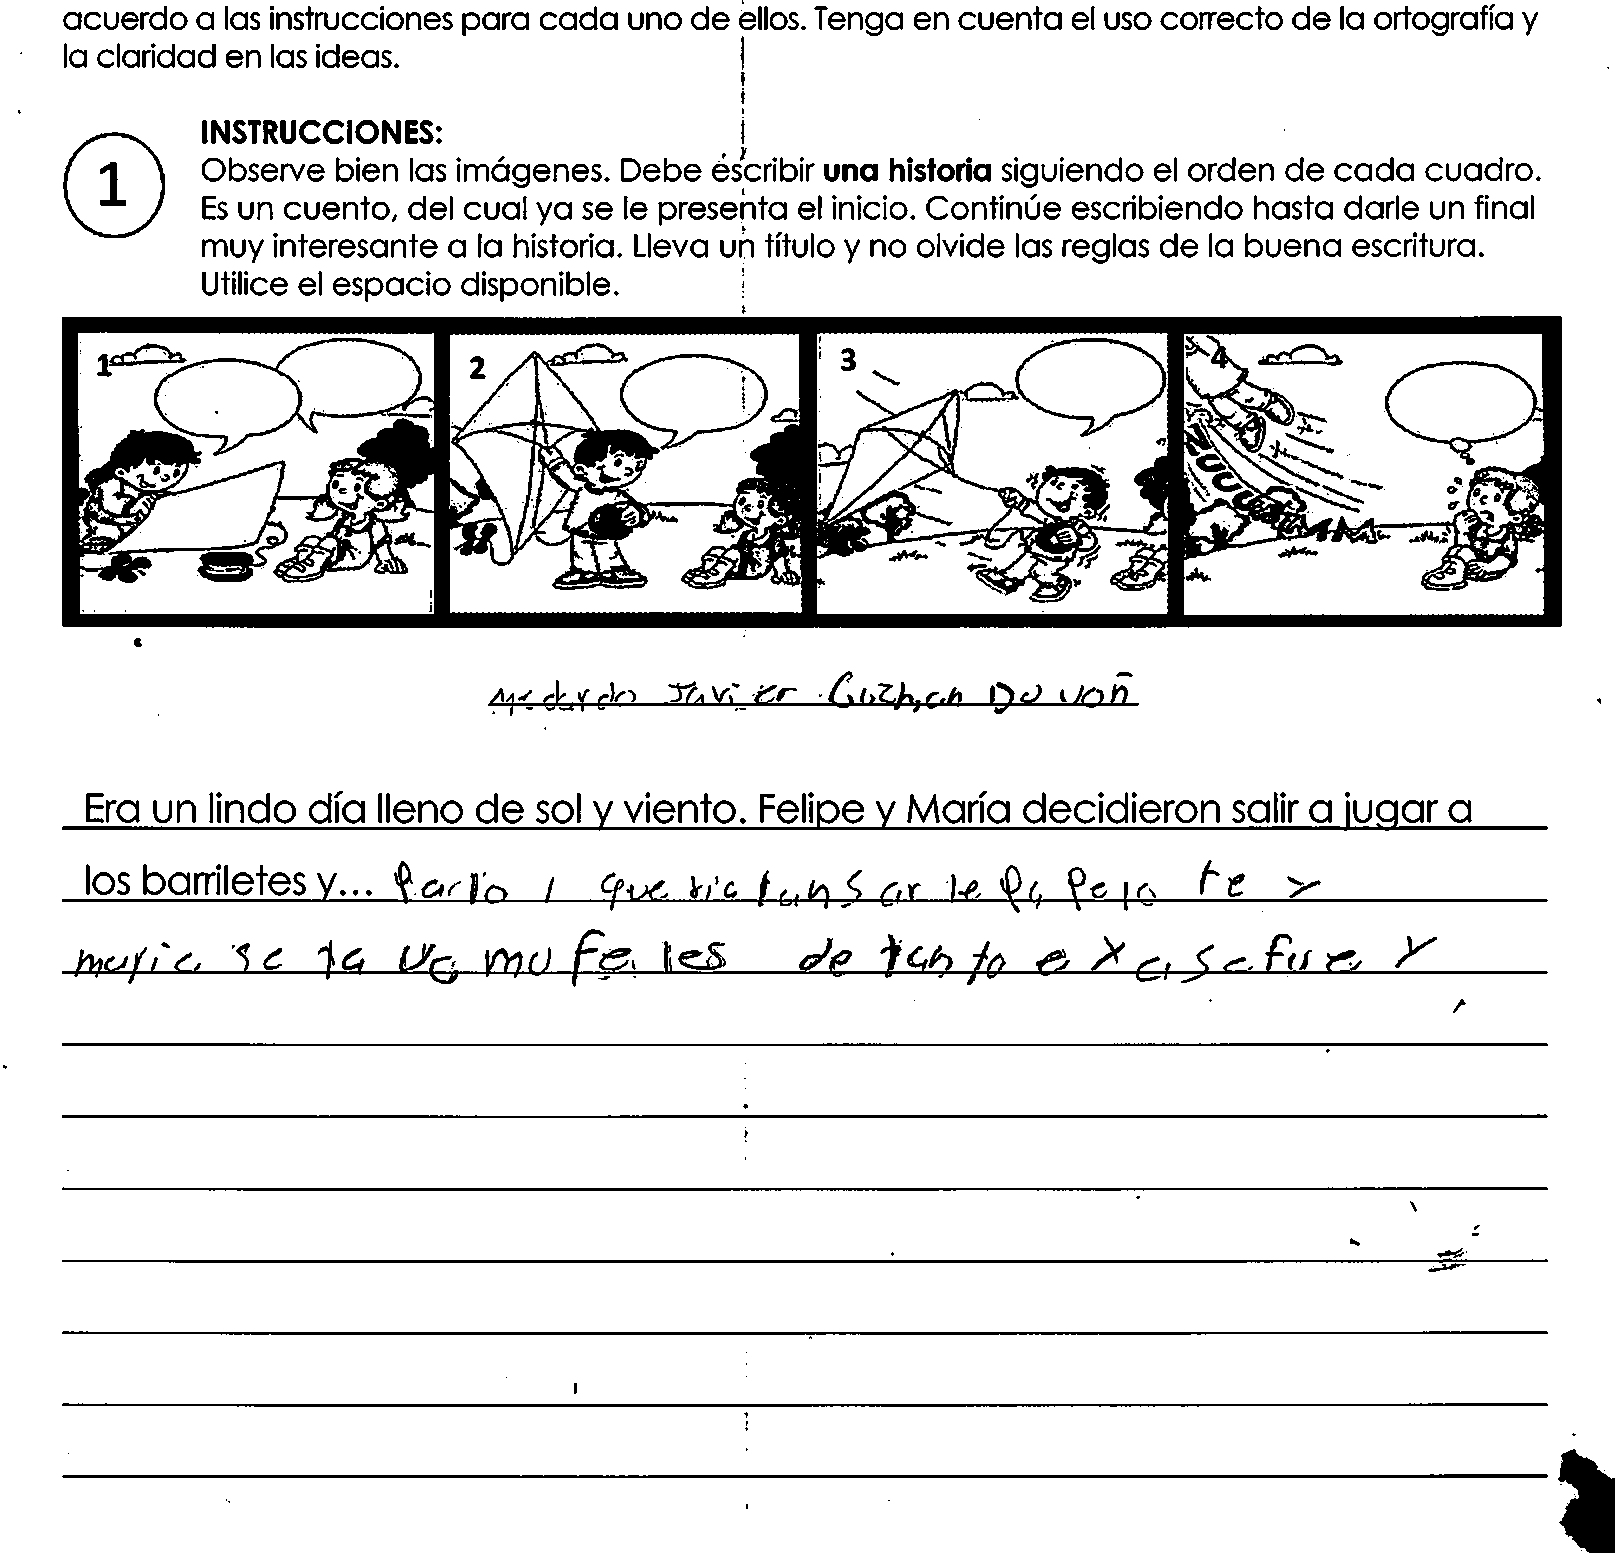 acuerdo a las instrucciones para cada uno de ellos. Tenga en cuenta el uso correcto de la ortografía y
la claridad en las ideas.
INSTRUCCIONES:
1
Observe bien las imágenes. Debe escribir una historia siguiendo el orden de cada cuadro.
Es un cuento, del cual ya se le presenta el inicio. Continúe escribiendo hasta darle un final
muy interesante a la historia. Lleva un título y no olvide las reglas de la buena escritura.
Utilice el espacio disponible.
1 2 3 4
ZUUUUUM
Javier Guzman
Era un lindo día lleno de sol y viento. Felipe y María decidieron salir a jugar a
los barriletes y... que le te y
maria se de tanto y